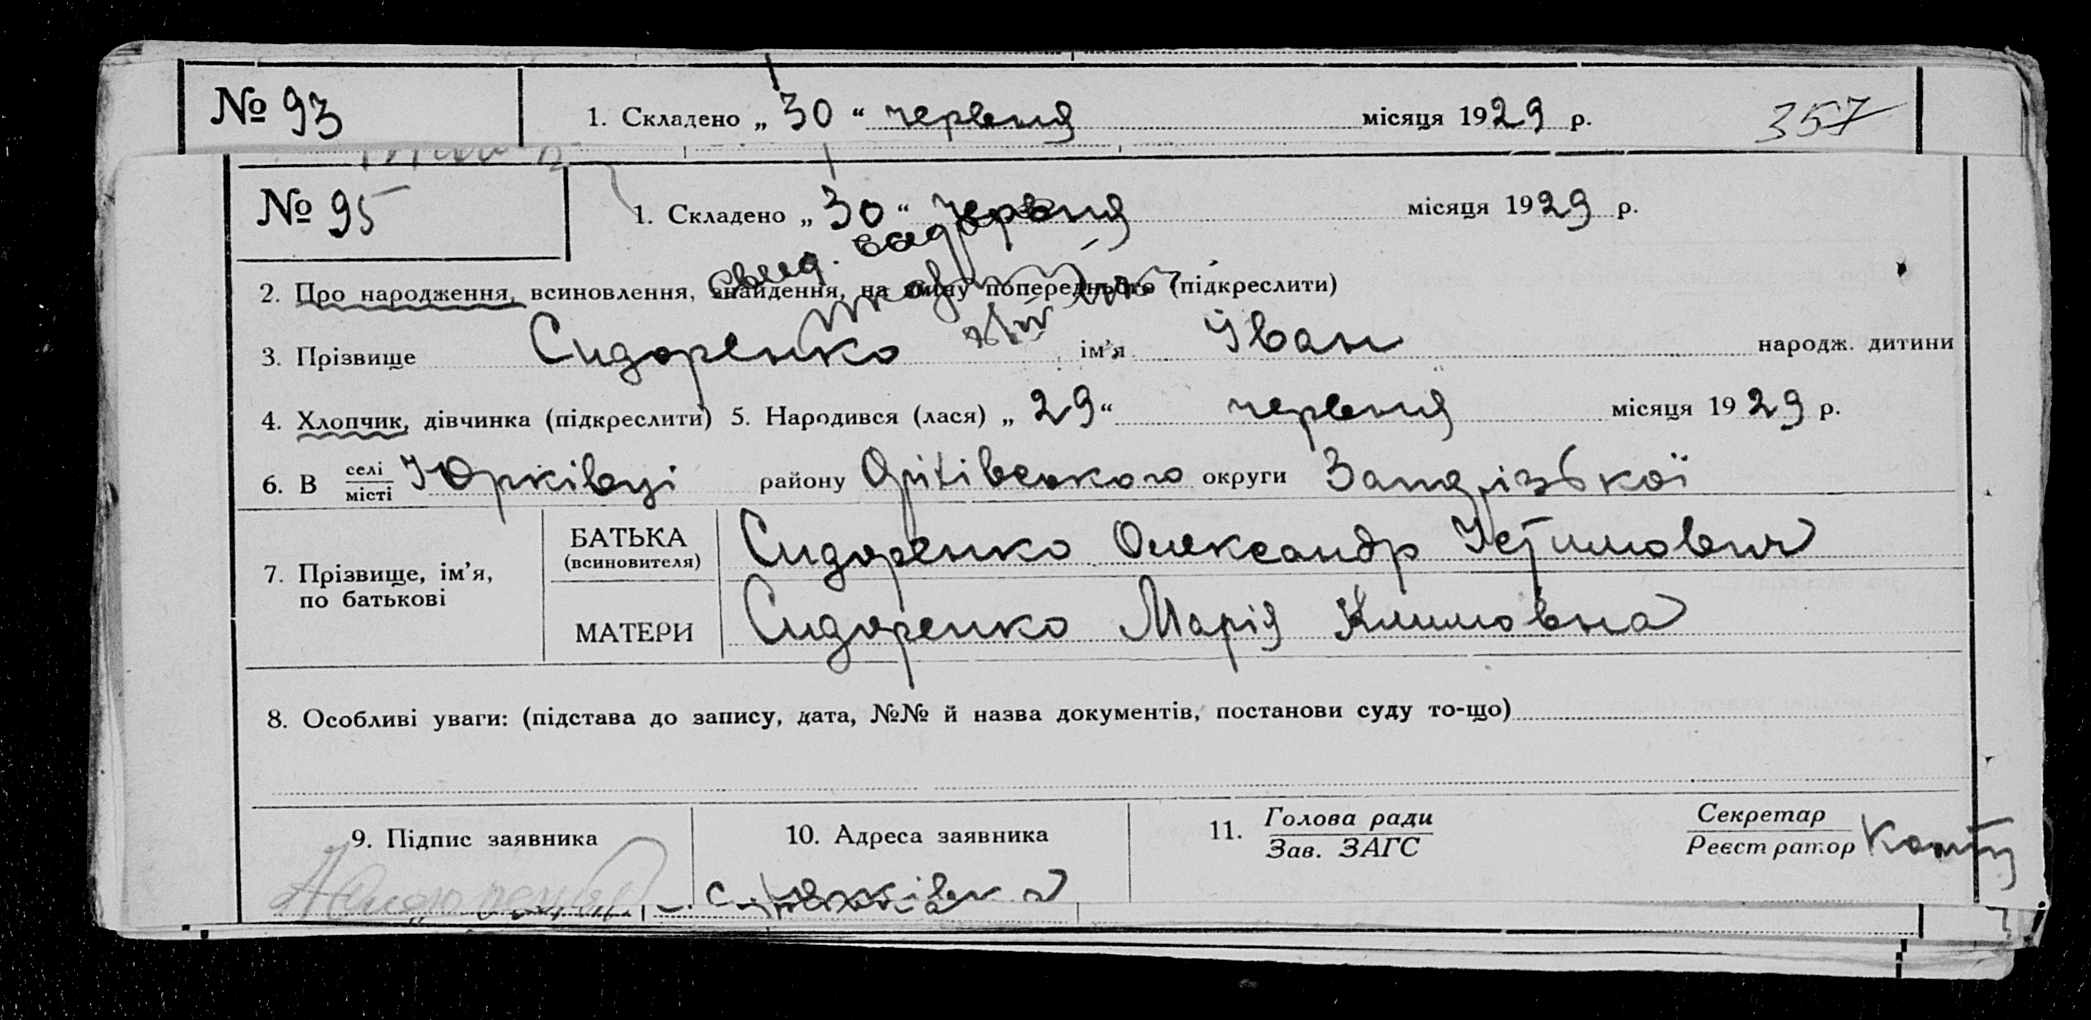 № 93 1. Складено „ 30 “ червня місяця 1929 р. 357
№ 95 1. Складено „ 30 “ червня місяця 1929 р.
2. Про народження, всиновлення, знайдення, на зміну попереднього (підкреслити)
3. Прізвище Сидоренко ім’я Іван народж. дитини
4. Хлопчик, дівчинка (підкреслити) 5. Народився (лася) „ 29 “ червня місяця 1929 р.
6. В селі
місті Юрківці району Оріхівського округи Запорізької
7. Прізвище, ім’я,
по батькові
БАТЬКА
(всиновителя) Сидоренко Олександр Устимович
МАТЕРИ Сидоренко Марія Климовна
8. Особливі уваги: (підстава до запису, дата, №№ й назва документів, постанови суду то-що)
9. Підпис заявника 10. Адреса заявника 11. Голова ради
Зав. ЗАГС
Секретар
Реєстратор